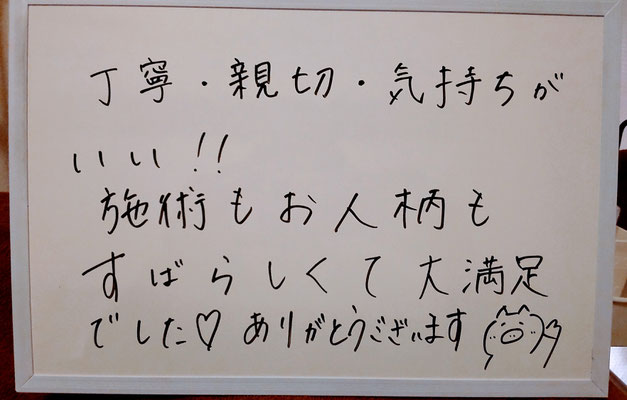 丁寧・親切・気持ちが
いい!!
施術もお人柄も
すばらしくて大満足
でした♡ありがとうございます